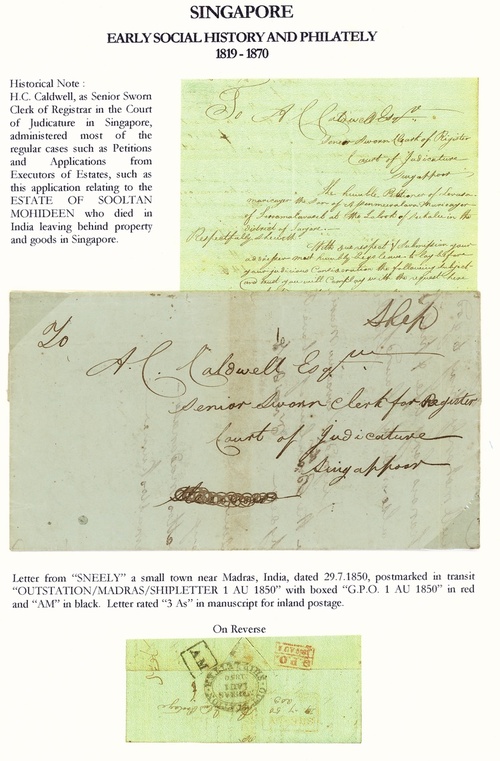 SINGAPORE
EARLY SOCIAL HISTORY AND PHILATELY
1819 - 1870
Historical Note :
H.C. Caldwell, as Senior Sworn
Clerk of Registrar in the Court
of Judicature in Singapore,
administered most of the
regular cases such as Petitions
and Applications from
Executors of Estates, such as
this application relating to the
ESTATE OF SOOLTAN
MOHIDEEN who died in
India leaving behind property
and goods in Singapore.
To A C Caldwell Esqr
Senior Sworn Clerk of Register
Court of Judicature
Singappoor
The humble Petitioner of
the Son of
of at the of in the
District of
Respectfully Sheweth
With due respect & Submission your
addresser most humbly begs leave to lay before
your judicious Consideration the following subject
and trust you will comply with the request
Ship
To
A. C. Caldwell Esqr
Senior Sworn Clerk for Register
Court of Judicature
Singappoor
Letter from "SNEELY" a small town near Madras, India, dated 29.7.1850, postmarked in transit
"OUTSTATION/MADRAS/SHIPLETTER 1 AU 1850" with boxed "G.P.O. 1 AU 1850" in red
and "AM" in black. Letter rated "3 As" in manuscript for inland postage.
On Reverse
AM
G.P.O.